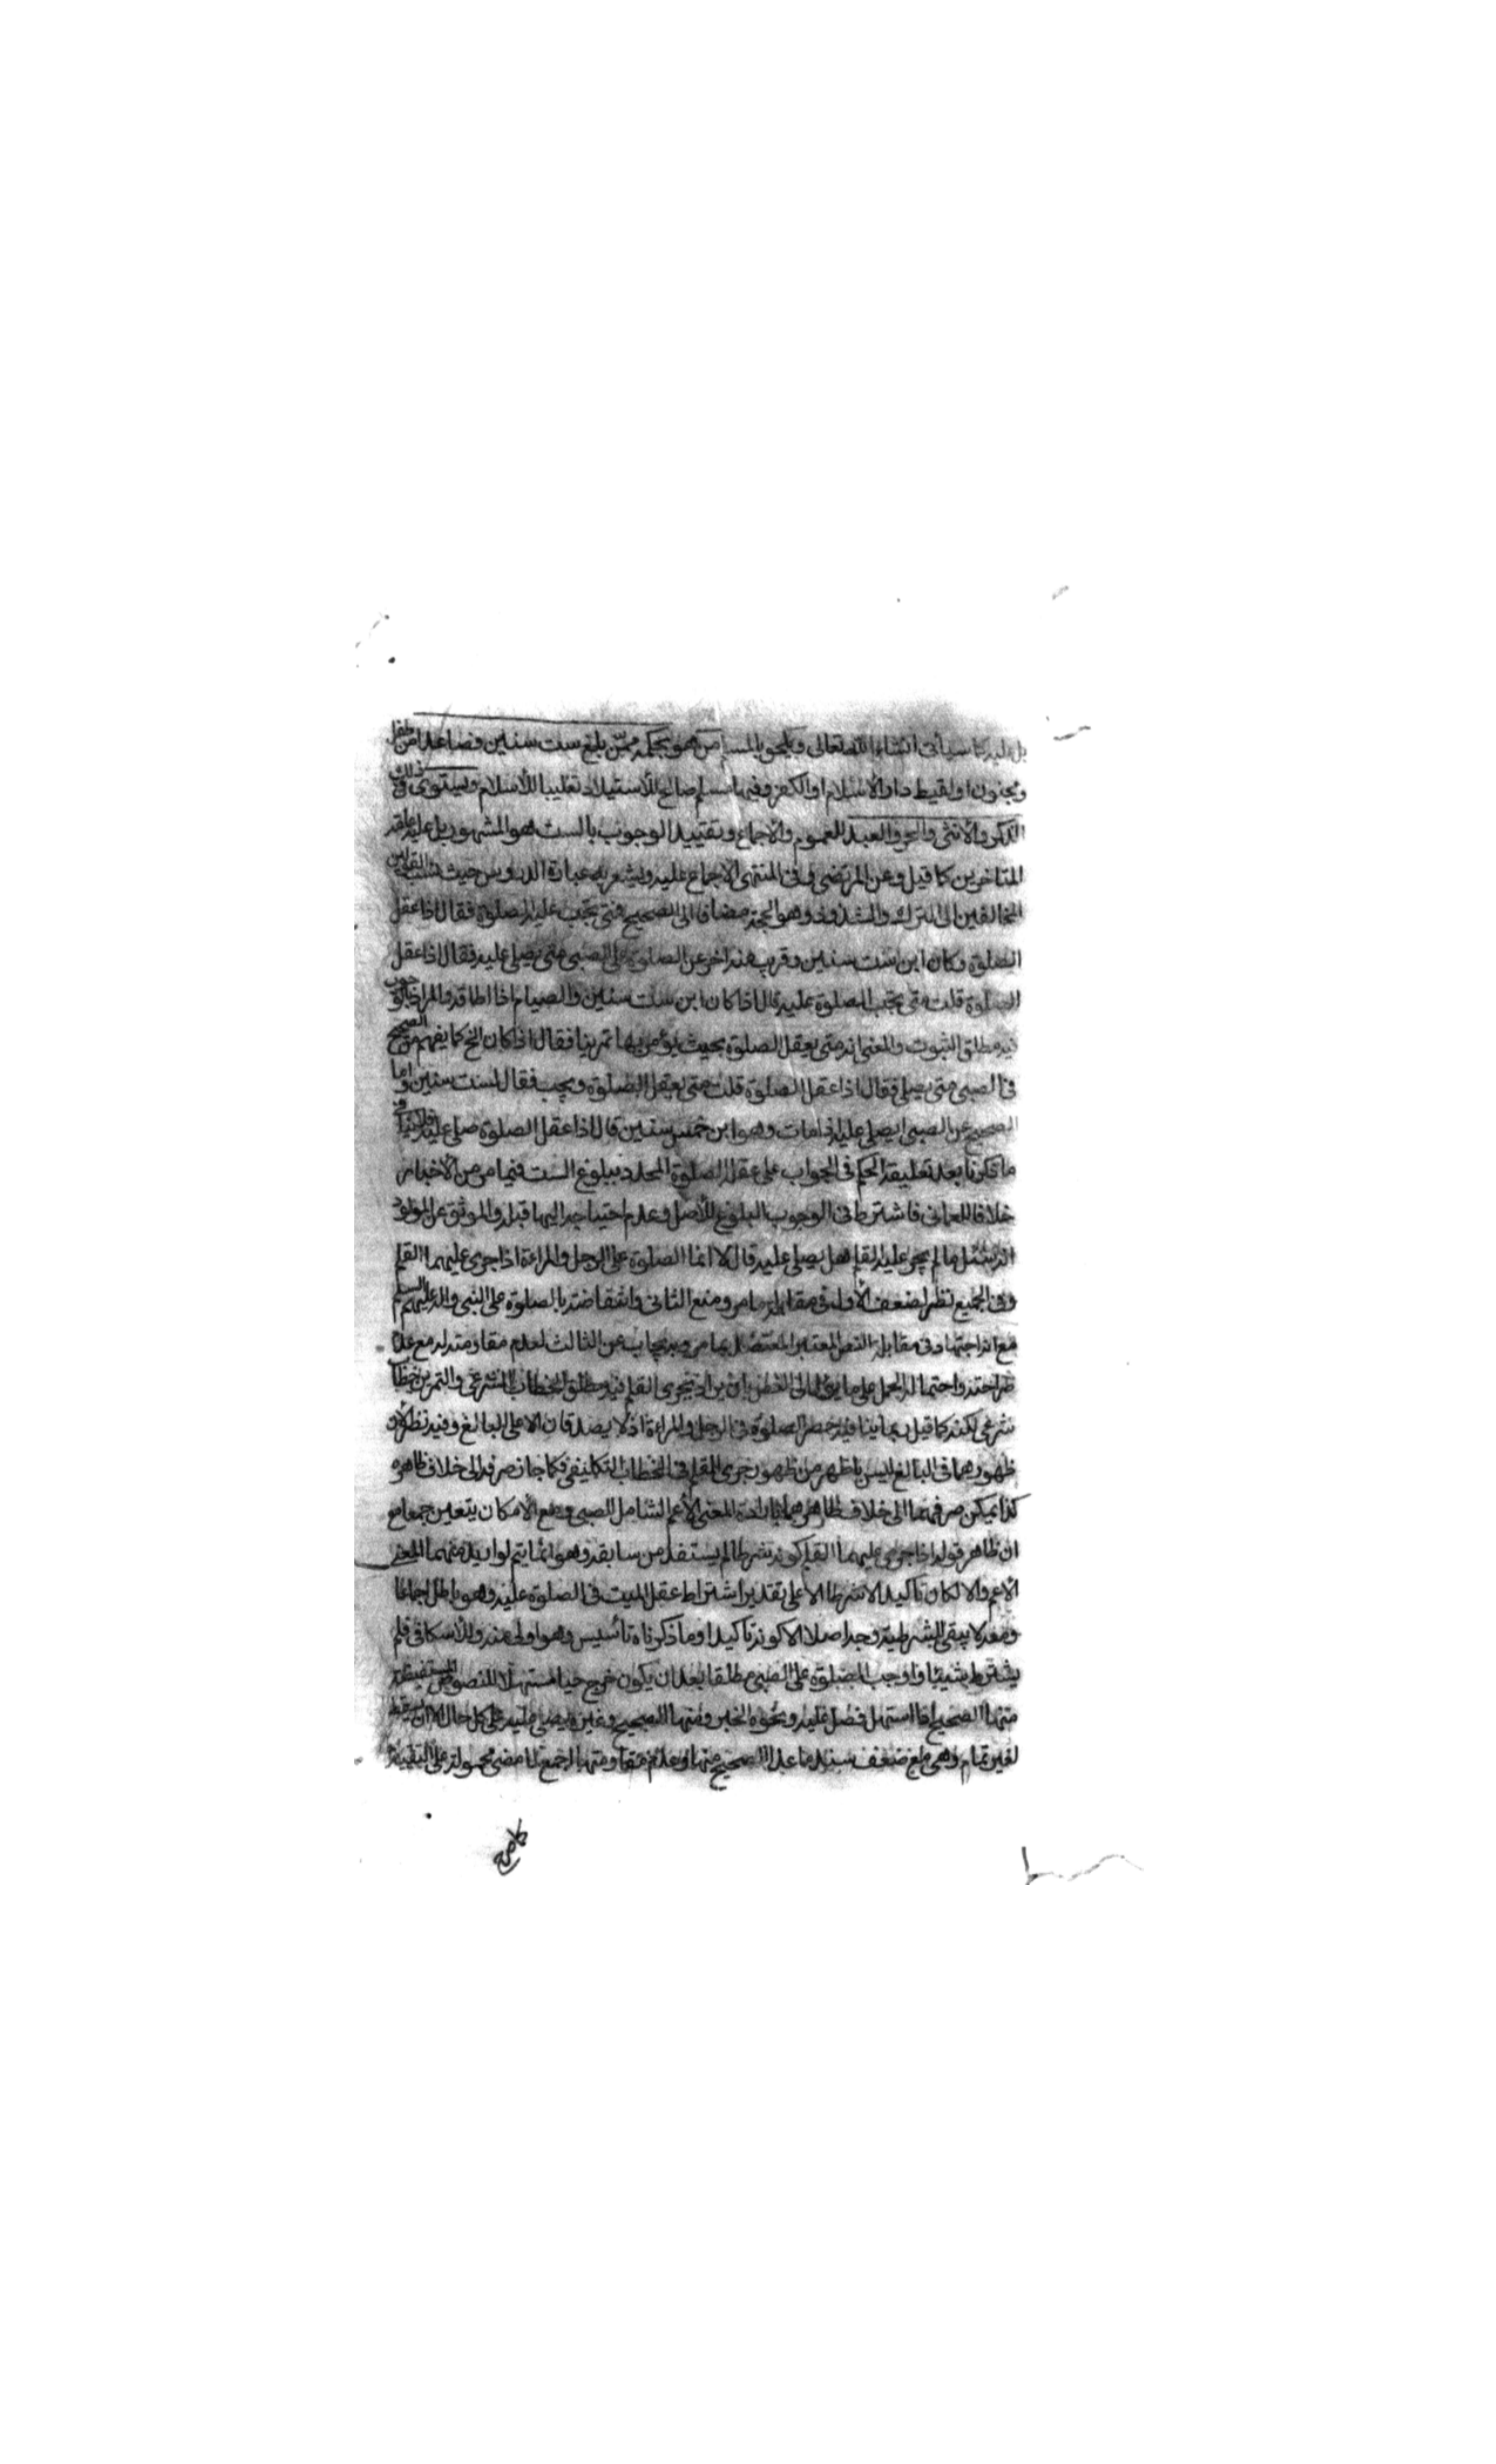 بل عليه كما سيأتى انشاء الله تعالى ويلحق بالمسلم من هو بحكمه ممّن بلغ ست سنين فصاعدا من طفل
ومجنون او لقيط دار الأسلام او الكفر وفيها مسلم صالح للأستيلاد تغليبا للأسلام ويستوى فى ذلك
الذكر والأنثى والحر والعبد للعموم والأجماع وتقييد الوجوب بالست هو المشهور بل عليه عامة
المتاخرين كما قيل وعن المرتضى وفى المنتهى الأجماع عليه ويشعر به عبارة الدروس حيث نسب القولين
المخالفين الى الترك والشذوذ وهو الحجة مضافا الى الصحيح فمتى تجب عليه الصلوة فقال اذا عقل
الصلوة وكان ابن ست سنين وقريب منه اخر عن الصلوة على الصبى متى يصلى عليه فقال اذا عقل
الصلوة قلت متى تجب الصلوة عليه قال اذا كان ابن ست سنين والصيام اذا اطاقه والمراد بالوجوب
فيه مطلق الثبوت والمعنى انه متى يعقل الصلوة بحيث يؤمر بها تمرينا فقال اذا كان الخ كما يفهم من الصحيح
فى الصبى متى يصلى فقال اذا عقل الصلوة قلت متى يعقل الصلوة ويجب فقال لست سنين واما
الصحيح عن الصبى ايصلى عليه اذا مات وهو ابن خمس سنين قال اذا عقل الصلوة صلى عليه فلا ينافى
ما ذكرنا بعد تعليقه الحكم فى الجواب على عقل الصلوة المحدد ببلوغ الست فيما مر من الأخبار
خلافا للعمانى فاشترط فى الوجوب البلوغ للأصل وعدم احتياجه اليها قبله والموثق عن المولود
اذ سئل ما لم يجر عليه القلم هل يصلى عليه قال لا انما الصلوة على الرجل والمراءة اذا جرى عليهما القلم
وفى الجميع نظر لضعف الأول فى مقابلة ما مر ومنع الثانى وانتقاضه بالصلوة على النبى واله عليهم السلم
مع انه اجتهاد فى مقابلة النص المعتبر المعتضد بما مر وبه يجاب عن الثالث لعدم مقاومته له مع عدم
صراحته واحتماله الحمل على ما يؤل الى الفصل بان يراد بجرى القلم فيه مطلق الخطاب الشرعى والتمرين خطاب
شرعى لكنه كما قيل ربما ينافيه حصر الصلوة فى الرجل والمراءة اذ لا يصدقان الا على البالغ وفيه نظر لأن
ظهورهما فى البالغ ليس باظهر من ظهور جرى القلم فى الخطاب التكليفى فكما جاز صرفه الى خلاف ظاهره
كذا يمكن صرفهما الى خلاف ظاهرهما بارادة المعنى الأعم الشامل للصبى ومع الأمكان يتعين جمعا مع
ان ظاهر قوله اذا جرى عليهما القلم كونه شرطا لم يستفد من سابقه وهو انما يتم لو اريد منهما المعنى
الأعم والا لكان تاكيدا لا شرطا الا على تقدير اشتراط عقل الميت فى الصلوة عليه وهو باطل اجماعا
ومعه لا يبقى للشرطية وجه اصلا الا كونه تاكيدا وما ذكرناه تأسيس وهو اولى منه وللأسكافى فلم
يشترط شيئا واوجب الصلوة على الصبى مطلقا بعد ان يكون خرج حيا مستهلا للنصوص المستفيضة
منها الصحيح اذا استهل فصل عليه ونحوه الخبر ومنها الصحيح وغيره يصلى عليه على كل حال الا ان يسقط
لغير تمام وهى مع ضعف سند ما عدا الصحيح منها وعدم مقاومتها اجمع لما مضى محمولة على التقية